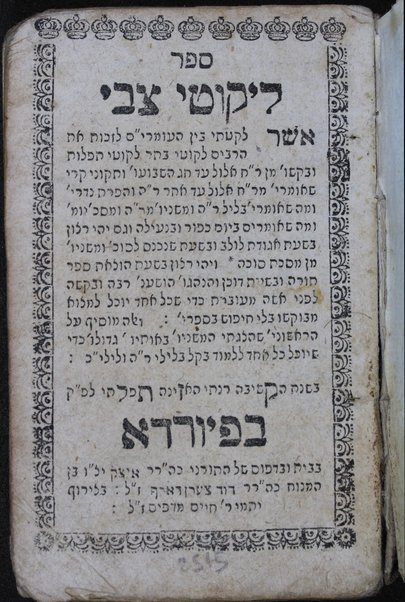 ספר
ליקוטי צבי
אשר לקטתי בין העומרי"ם לזכות את
הרבים לקוטי בתר לקוטי תפלות
ובקשו' מן ר"ח אלול עד חג השבועו' ותקוני קרי
שאומרי' מר"ח אלול עד אחר ר"ה והפרת נדרי'
ומה שאומרי' בליל ר"ה ומשניו' מר"ה ומסכ' יומ'
ומה שאומרים ביום כפור ובנעילה וגם יהי רצון
בשעת אגודת לולב ובשעת שנכנס לסוכ' ומשניו'
מן מסכת סוכה * ויהי רצון בשעת הוצאת ספר
תורה ובשעת דוכן והנהגו' הושענ' רבה ובקשה
לפני אשה מעוברת כדי שכל אחד יוכל למצוא
מבוקשו בלי חיפוש בספרי' : וזה מוסיף על
הראשוני' שהלגתי המשניו' באותיו' גדולו' כדי
שיוכל כל אחד ללמוד בקל בלילי ר"ה ולילי י"כ :
בשנת הקשיבה רנתי האזינה תפלתי לפ"ק
בפיורדא
בבית ובדפוס של התורני כה"רר איצק יצ"ו בן
המנוח כה"רר דוד צירן דארף ז"ל : בצירוף
יתמי ר' חיים מדפיס ז"ל :
2515